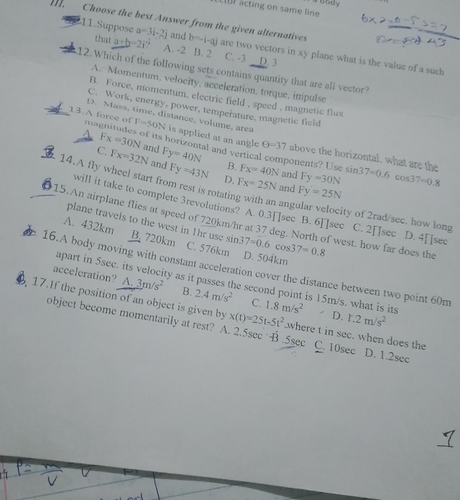 acting on same line
III. Choose the best Answer from the given alternatives
11.Suppose a=3i-2j and b=-i-aj are two vectors in xy plane what is the value of a such
that a+b=2i? A. -2 B. 2 C. -3 D. 3
12.Which of the following sets contains quantity that are all vector?
A. Momentum, velocity, acceleration, torque, impulse
B. Force, momentum, electric field , speed , magnetic flux
C. Work, energy, power, temperature, magnetic field
D. Mass, time, distance, volume, area
13.A force of F=50N is applied at an angle Θ=37 above the horizontal. what are the
magnitudes of its horizontal and vertical components? Use sin37=0.6 cos37=0.8
A. Fx =30N and Fy= 40N B. Fx= 40N and Fy =30N
C. Fx=32N and Fy =43N D. Fx= 25N and Fy = 25N
14.A fly wheel start from rest is rotating with an angular velocity of 2rad/sec. how long
will it take to complete 3revolutions? A. 0.3∏sec B. 6∏sec C. 2∏sec D. 4∏sec
15.An airplane flies at speed of 720km/hr at 37 deg. North of west. how far does the
plane travels to the west in 1hr use sin37=0.6 cos37= 0.8
A. 432km B. 720km C. 576km D. 504km
16.A body moving with constant acceleration cover the distance between two point 60m
apart in 5sec. its velocity as it passes the second point is 15m/s. what is its
acceleration? A. 3m/s² B. 2.4 m/s² C. 1.8 m/s² D. 1.2 m/s²
17.If the position of an object is given by x(t)=25t-5t².where t in sec. when does the
object become momentarily at rest? A. 2.5sec B .5sec C. 10sec D. 1.2sec
1